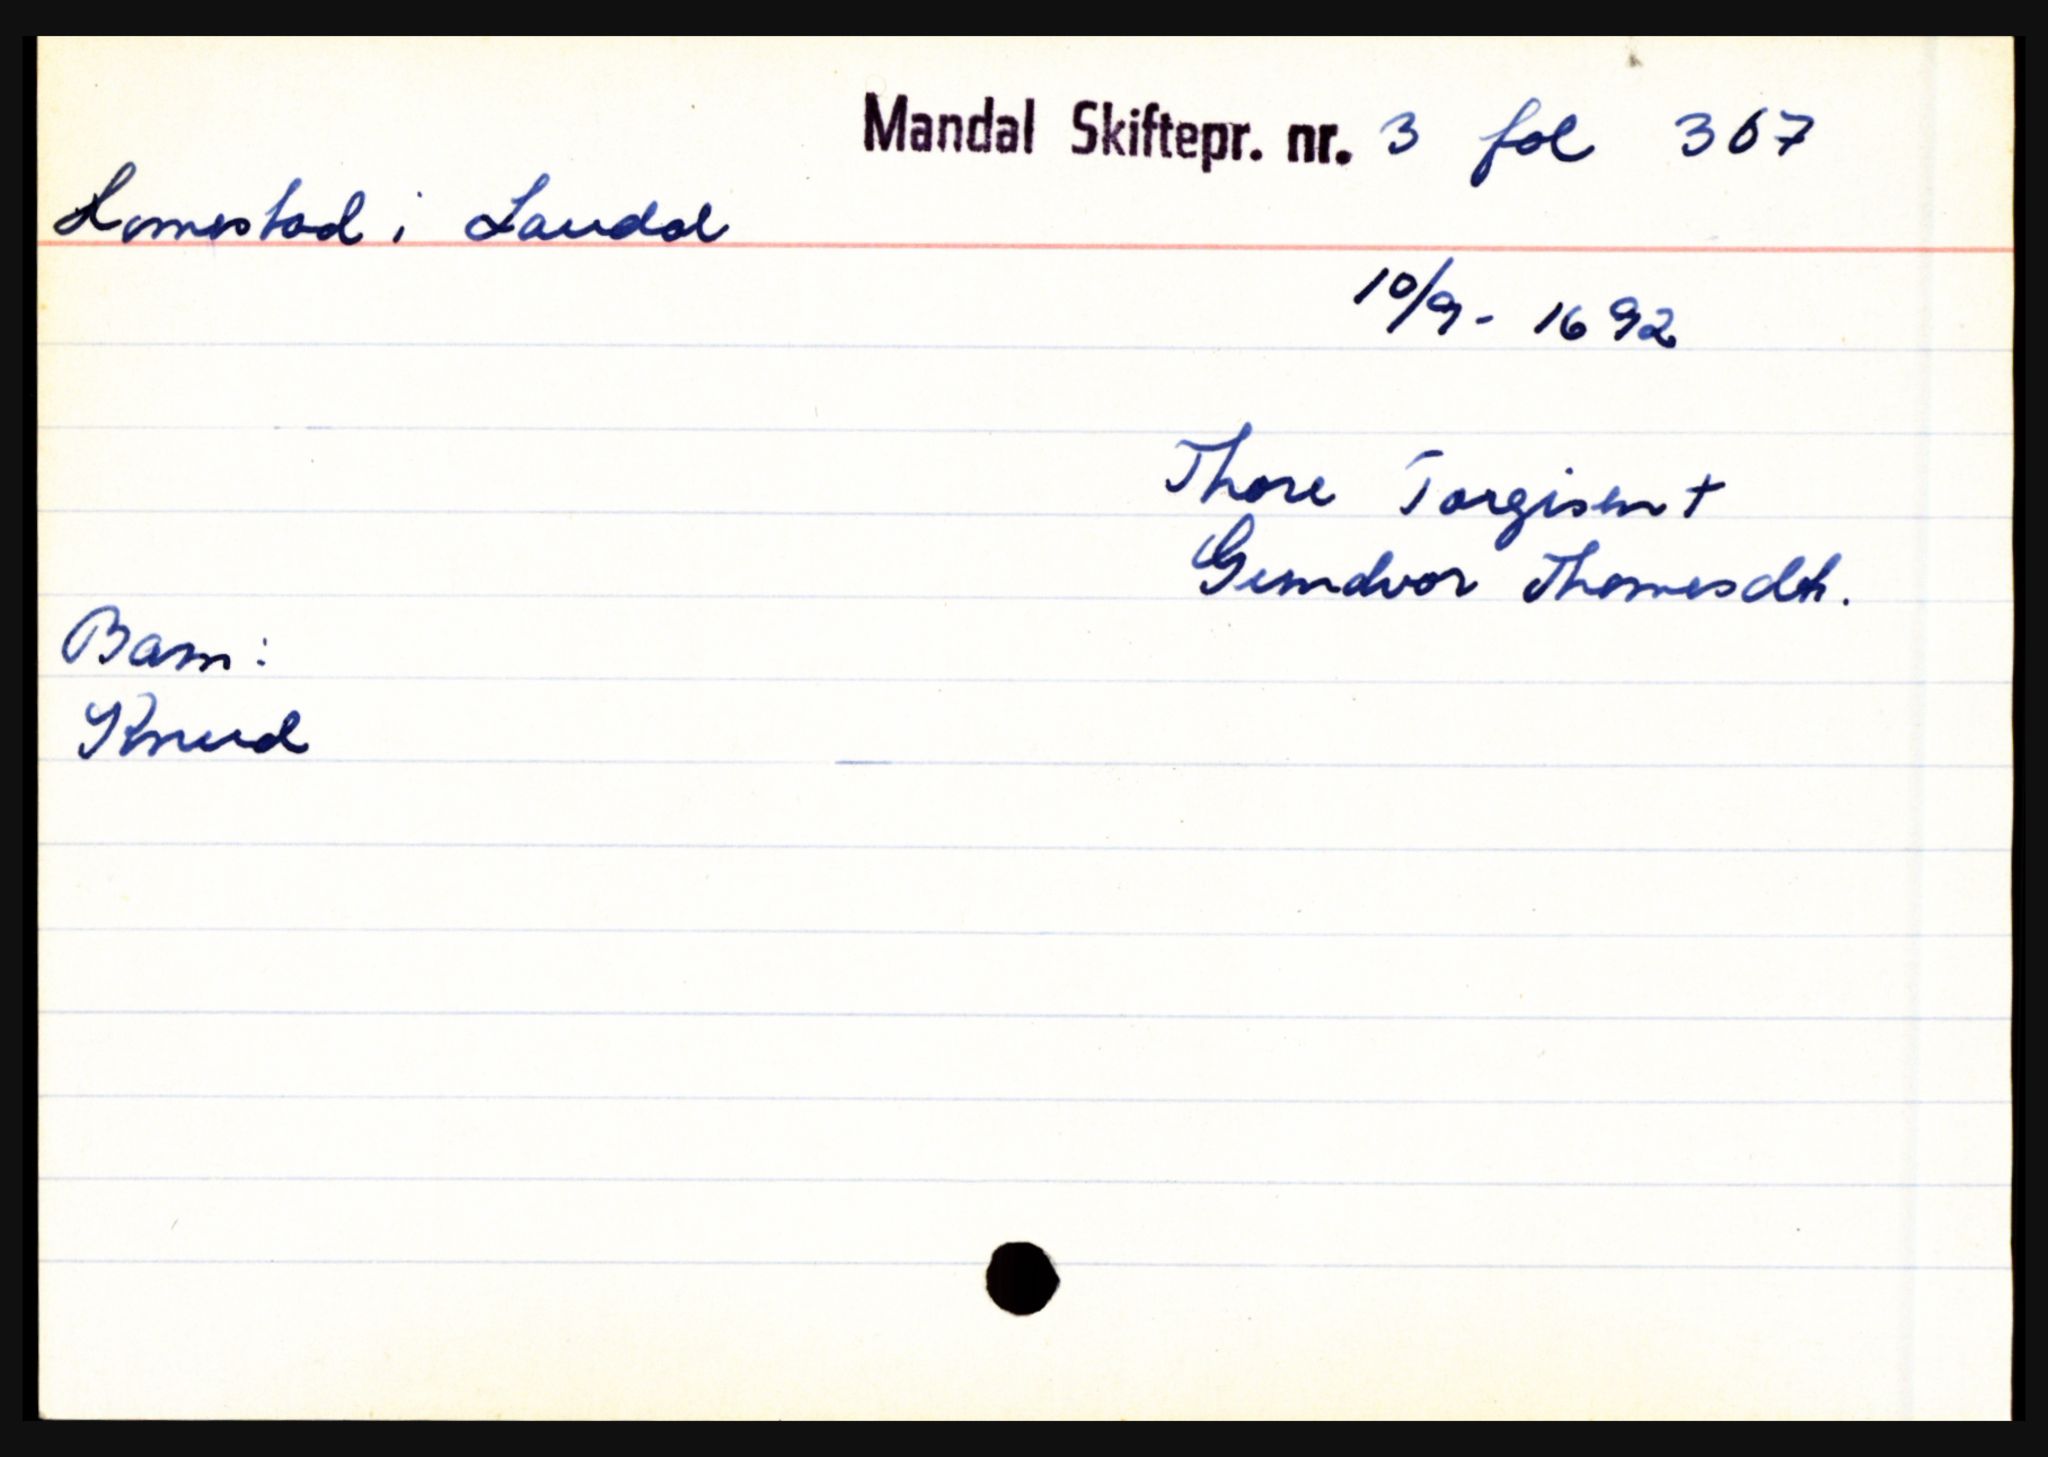 Mandal Skiftepr. nr. 3 fol 367
Lomestad i Laudal
10/9 - 1692
Thore Torgisen +
Gundvor Thomesdtr.
Barn:
Knud